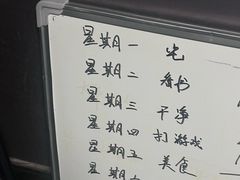 星期一 光
星期二 看书
星期三 干净
星期四 打游戏
星期五 美食
星期